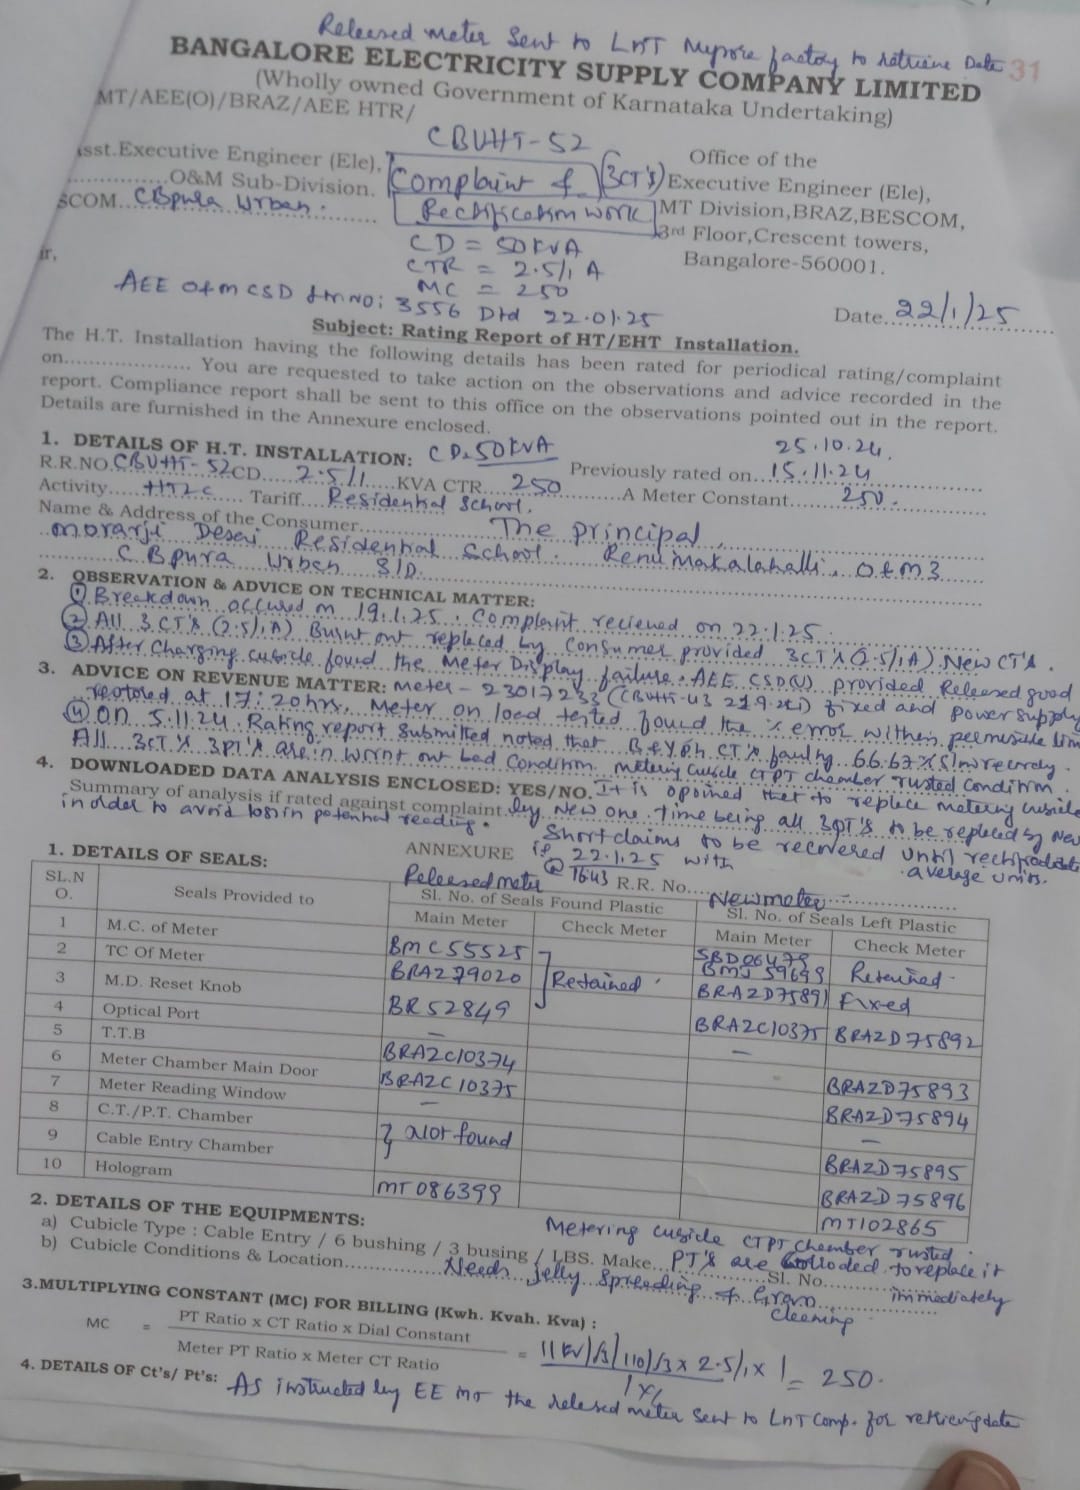 Released meter Sent to LnT Mysore factory to retrieve Data 31
BANGALORE ELECTRICITY SUPPLY COMPANY LIMITED
(Wholly owned Government of Karnataka Undertaking)
MT/AEE(O)/BRAZ/AEE HTR/
CBUHT-52
Asst.Executive Engineer (Ele),
O&M Sub-Division.
BESCOM. CBpura Urban.
Complaint & (3CT's)
Rectification work
Office of the
Executive Engineer (Ele),
MT Division,BRAZ,BESCOM,
3rd Floor,Crescent towers,
Bangalore-560001.
CD = 50KVA
CTR = 2.5/1 A
MC = 250
Sir,
AEE O&M CSD Ltr No: 3556 Dtd 22.01.25
Date. 22/1/25
Subject: Rating Report of HT/EHT Installation.
The H.T. Installation having the following details has been rated for periodical rating/complaint
on.................. You are requested to take action on the observations and advice recorded in the
report. Compliance report shall be sent to this office on the observations pointed out in the report.
Details are furnished in the Annexure enclosed.
1. DETAILS OF H.T. INSTALLATION: CD-50KVA 25.10.24
R.R.NO. CBUHT-52 CD. 2.5/1 KVA CTR. 250 Previously rated on. 15.11.24
Activity. HT2C Tariff. Residential School. A Meter Constant. 250.
Name & Address of the Consumer. The principal,
morarji Desai Residential School. Renumakalahalli, O&M3
C B pura Urban S/D.
2. OBSERVATION & ADVICE ON TECHNICAL MATTER:
① Breakdown occured on 19.1.25. Complaint recieved on 22.1.25.
② All 3 CT's (2.5/1A) Burnt out replaced by Consumer provided 3CT's (2.5/1A) New CT's.
③ After Charging cubicle found the Meter Display failure. AEE CSD(U) provided Released good
3. ADVICE ON REVENUE MATTER: meter - 23017233 (CBUHT-43 fixed and power supply
restored at 17:20hrs. Meter on load tested found the % error within permissible limit
④ On 5.11.24 Rating report submitted noted that R&Y ph CT's faulty 66.67% Slow recordy.
All 3CT's 3PT's are in wornt out bad Condition. metering Cubicle CTPT chamber rusted Condition.
4. DOWNLOADED DATA ANALYSIS ENCLOSED: YES/NO. It is opoined that to replace metering cubicle
Summary of analysis if rated against complaint by New one. Time being all 3PT's to be replaced by New
in order to avoid loss in potential reading. Short claims to be recovered until rectification
ANNEXURE 22.1.25 with average units.
1. DETAILS OF SEALS: Released meter @ 16:43 R.R. No. New meter
SL.NO. Seals Provided to Sl. No. of Seals Found Plastic Sl. No. of Seals Left Plastic
Main Meter Check Meter Main Meter Check Meter
1 M.C. of Meter BMC55525 SBD06479 BMJ 59649 Retained
2 TC Of Meter BRAZ79020 Retained BRAZD75891 Fixed
3 M.D. Reset Knob BR52849 BRAZC10375 BRAZD75892
4 Optical Port — —
5 T.T.B BRAZC10374 BRAZD75893
6 Meter Chamber Main Door BRAZC10375 BRAZD75894
7 Meter Reading Window — —
8 C.T./P.T. Chamber Not found BRAZD75895
9 Cable Entry Chamber BRAZD75896
10 Hologram MT086399 MT102865
2. DETAILS OF THE EQUIPMENTS: Metering cubicle CTPT Chamber rusted.
a) Cubicle Type : Cable Entry / 6 bushing / 3 busing / LBS. Make. PT's are to replace it
b) Cubicle Conditions & Location. Needs jelly Spreading & Grass Sl. No. immediately
cleening
3.MULTIPLYING CONSTANT (MC) FOR BILLING (Kwh. Kvah. Kva) :
MC = PT Ratio x CT Ratio x Dial Constant
Meter PT Ratio x Meter CT Ratio
= 11KV/√3/110/√3 x 2.5/1 x 1 = 250.
1x1
4. DETAILS OF Ct's/ Pt's: As instructed by EE MT the relesed meter sent to LnT Comp. for retrieving data